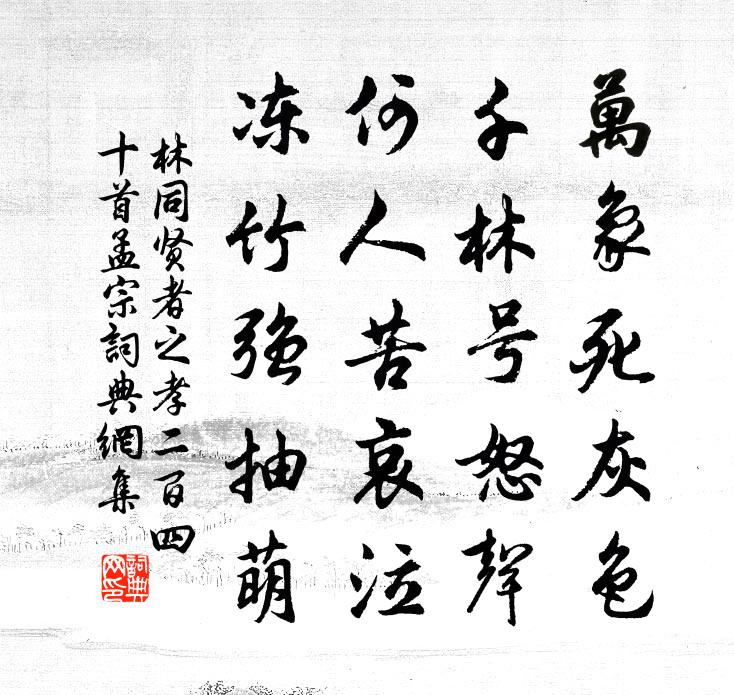 萬象死灰色
千林号怒聲
何人苦哀泣
冻竹强抽萌
林同贤者之孝二百四
十首孟宗詞典網集
詞典
网印